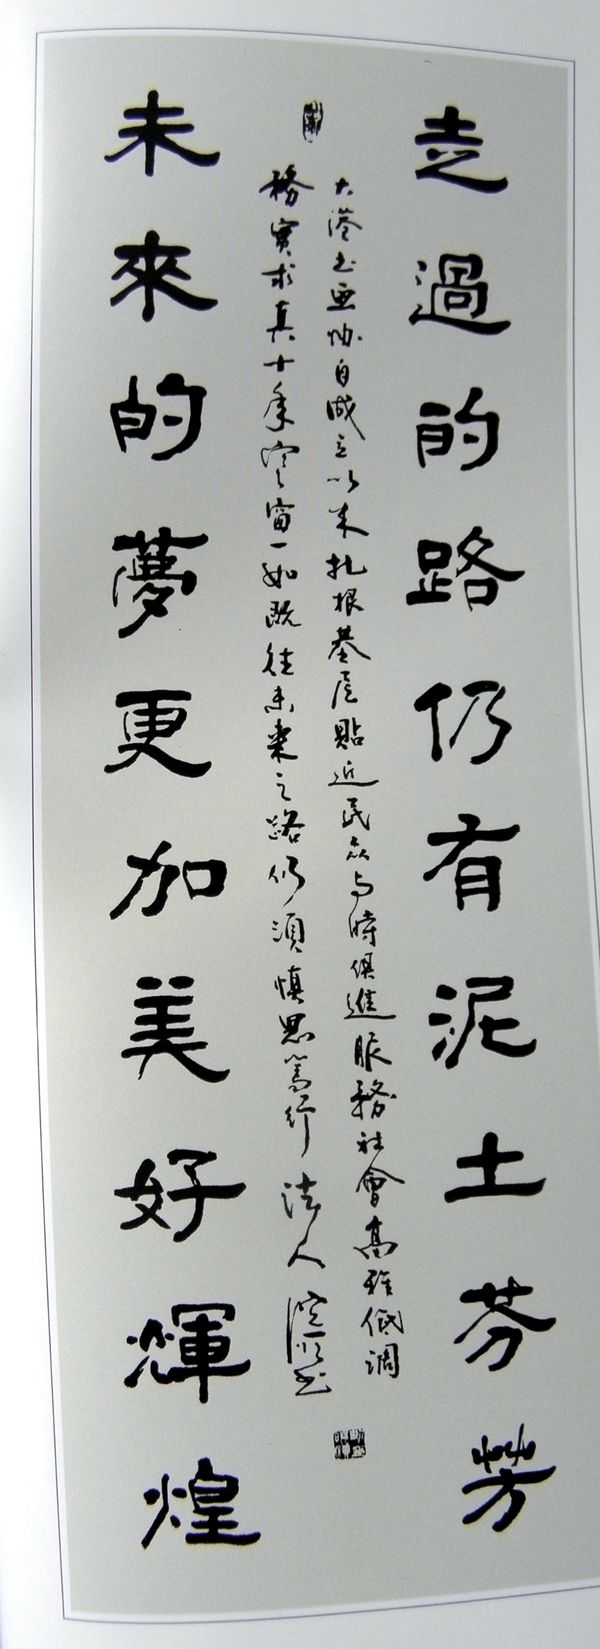 走過的路仍有泥土芬芳
大港书画协自成立以来扎根基层貼近民众与時俱進服務社會高雅低調
務實求真十年寒窗一如既往未来之路仍須慎思篤行 法人
未來的夢更加美好輝煌